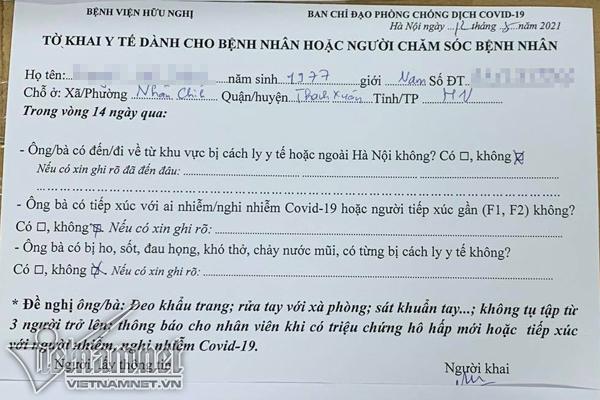 BỆNH VIỆN HỮU NGHỊ BAN CHỈ ĐẠO PHÒNG CHỐNG DỊCH COVID-19
Hà Nội ngày 12 tháng 5 năm 2021
TỜ KHAI Y TẾ DÀNH CHO BỆNH NHÂN HOẶC NGƯỜI CHĂM SÓC BỆNH NHÂN
Họ tên: năm sinh 1977 giới Nam Số ĐT.
Chỗ ở: Xã/Phường Nhân Chính Quận/huyện Thanh Xuân Tỉnh/TP HN
Trong vòng 14 ngày qua:
- Ông/bà có đến/đi về từ khu vực bị cách ly y tế hoặc ngoài Hà Nội không? Có ☐, không ☒
Nếu có xin ghi rõ đã đến đâu:
- Ông bà có tiếp xúc với ai nhiễm/nghi nhiễm Covid-19 hoặc người tiếp xúc gần (F1, F2) không?
Có ☐, không ☒ Nếu có xin ghi rõ:
- Ông bà có bị ho, sốt, đau họng, khó thở, chảy nước mũi, có từng bị cách ly y tế không?
Có ☐, không ☒ Nếu có xin ghi rõ:
* Đề nghị ông/bà: Đeo khẩu trang; rửa tay với xà phòng; sát khuẩn tay...; không tụ tập từ
3 người trở lên; thông báo cho nhân viên khi có triệu chứng hô hấp mới hoặc tiếp xúc
với người nhiễm, nghi nhiễm Covid-19.
Người lấy thông tin Người khai
vietnamnet
VIETNAMNET.VN